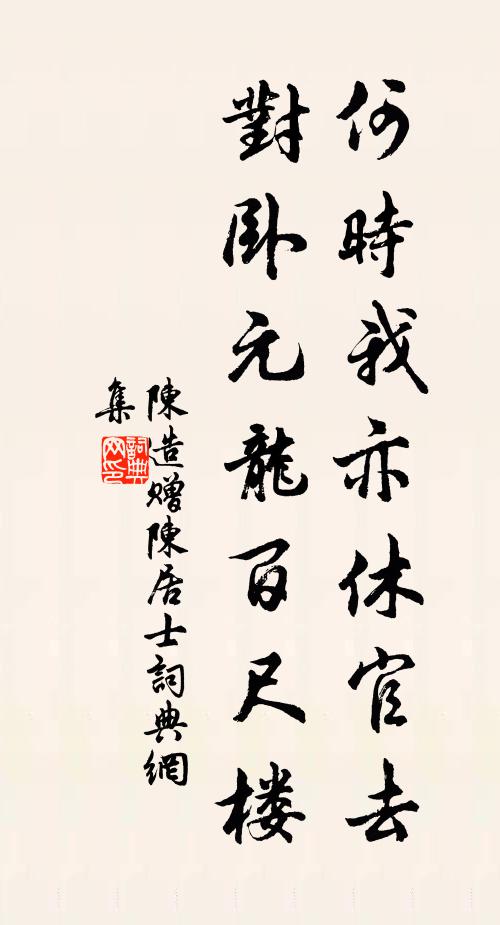 何時我亦休官去
對卧元龍百尺楼
陳造贈陳居士詞典網
集
詞典
网印